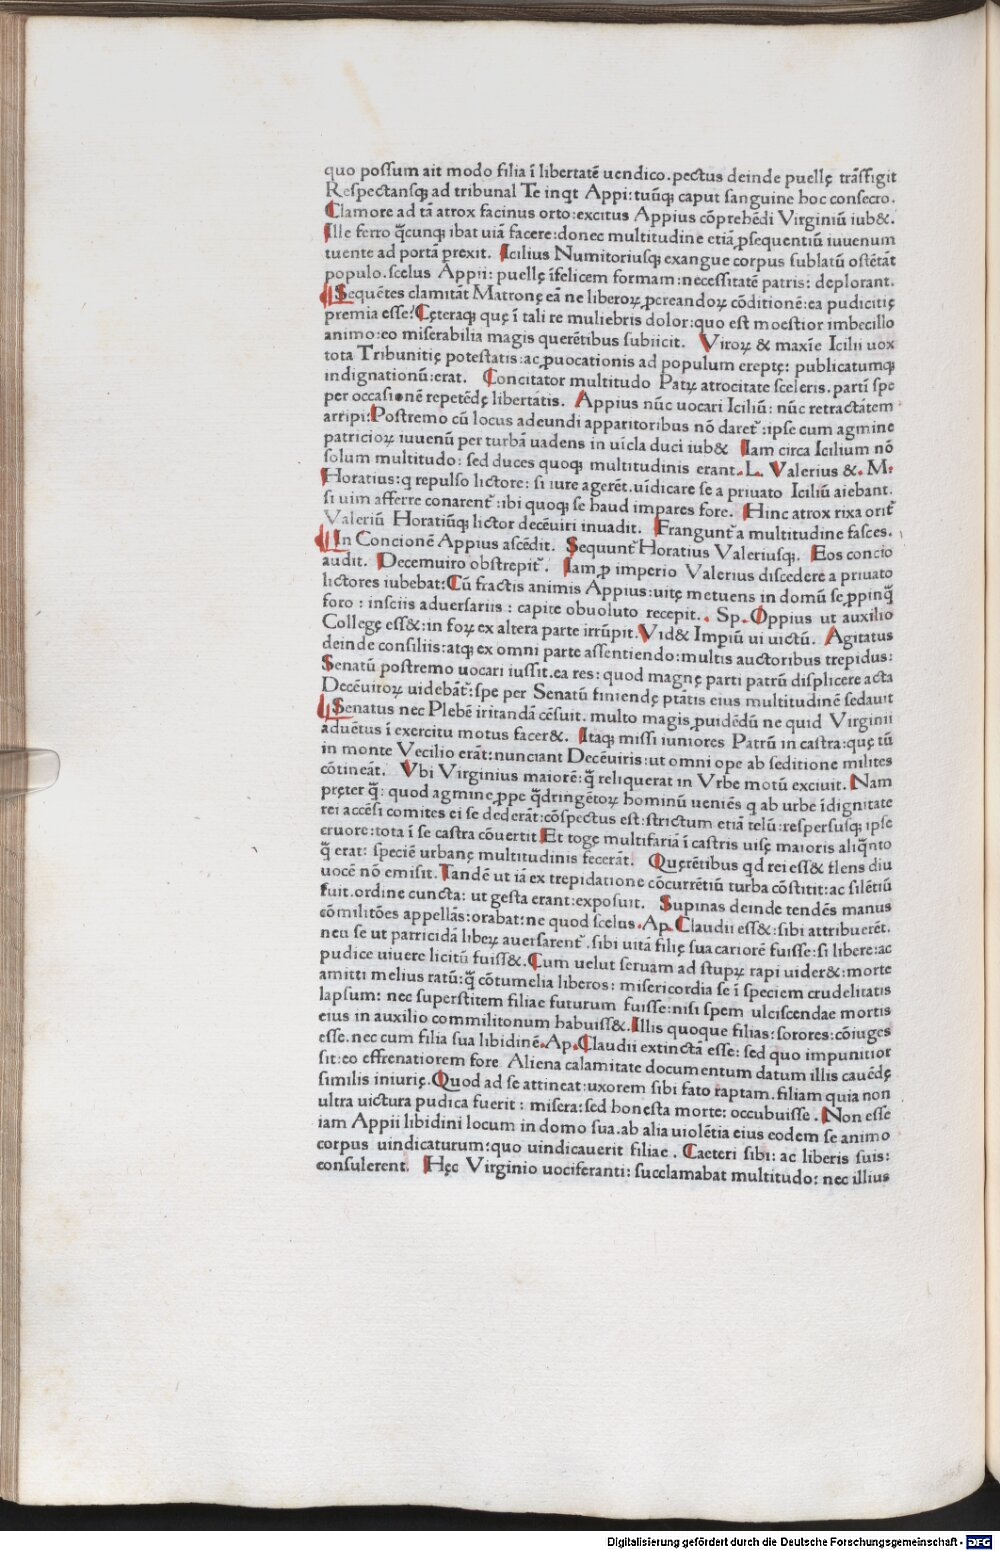 quo possum ait modo filia ī libertatē uendico. pectus deinde puellę trāsfigit
Respectansq; ad tribunal Te inqt Appi: tuūq; caput sanguine hoc consecro.
Clamore ad tā atrox facinus orto: excitus Appius cōprehēdi Virginiū iub&.
Ille ferro q̄cunq; ibat uiā facere: donec multitudine etiā ꝓsequentiū iuuenum
tuente ad portā prexit. Icilius Numitoriusq; exangue corpus sublatū ostētāt
populo. scelus Appii: puellę īfelicem formam: necessitatē patris: deplorant.
Sequētes clamitāt Matronę eā ne liberoꝝ ꝓcreandoꝝ cōditionē: ea pudicitię
premia esse? Cęteraq; quę ī tali re muliebris dolor: quo est moestior imbecillo
animo: eo miserabilia magis querētibus subiicit. Viroꝝ & maxīe Icilii uox
tota Tribunitię potestatis: ac ꝓuocationis ad populum ereptę: publicatumq;
indignationū: erat. Concitator multitudo Patꝝ atrocitate sceleris. partī spe
per occasionē repetēdę libertatis. Appius nūc uocari Iciliū: nūc retractātem
arripi: Postremo cū locus adeundi apparitoribus nō daret᷑: ipse cum agmine
patricioꝝ iuuenū per turbā uadens in uīcla duci iub& Iam circa Icilium nō
solum multitudo: sed duces quoq; multitudinis erant. L. Valerius &. M.
Horatius: q repulso lictore: si iure agerēt. uīdicare se a priuato Iciliū aiebant.
si uim afferre conarent᷑: ibi quoq; se haud impares fore. Hinc atrox rixa orit᷑
Valeriū Horatiūq; lictor decēuiri inuadit. Frangunt᷑ a multitudine fasces.
In Concionē Appius ascēdit. Sequunt᷑ Horatius Valeriusq;. Eos concio
audit. Decemuiro obstrepit᷑. Iam ꝓ imperio Valerius discedere a priuato
lictores iubebat: Cū fractis animis Appius: uitę metuens in domū se ꝓpinq̄
foro: insciis aduersariis: capite obuoluto recepit. Sp. Oppius ut auxilio
Collegę ess&: in foꝝ ex altera parte irrūpit. Vid& Impiū ui uictū. Agitatus
deinde consiliis: atq; ex omni parte assentiendo: multis auctoribus trepidus:
Senatū postremo uocari iussit. ea res: quod magnę parti patrū displicere acta
Decēuiroꝝ uidebāt᷑: spe per Senatū finiendę ptātis eius multitudinē sedauit
Senatus nec Plebē iritandā cēsuit. multo magis ꝓuidēdū ne quid Virginii
aduētus ī exercitu motus facer&. Itaq; missi iuniores Patrū in castra: quę tū
in monte Vecilio erāt: nunciant Decēuiris: ut omni ope ab seditione milites
cōtineāt. Vbi Virginius maiorē: q̄ reliquerat in Vrbe motū exciuit. Nam
pręter q̄: quod agmine ꝓpe q̄dringētoꝝ hominū ueniēs q ab urbe īdignitate
rei accēsi comites ei se dederāt: cōspectus est: strictum etiā telū: respersusq; ipse
cruore: tota ī se castra cōuertit Et togę multifariā ī castris uisę maioris aliq̄nto
q̄ erat: speciē urbanę multitudinis fecerāt. Quęrētibus qd rei ess& flens diu
uocē nō emisit. Tandē ut iā ex trepidatione cōcurrētiū turba cōstitit: ac silētiū
fuit. ordine cuncta: ut gesta erant: exposuit. Supinas deinde tendēs manus
cōmilitōes appellās: orabat: ne quod scelus. Ap. Claudii ess&: sibi attribuerēt.
neu se ut parricidā libeꝝ auersarent᷑. sibi uitā filię sua cariorē fuisse: si libere: ac
pudice uiuere licitū fuiss&. Cum uelut seruam ad stupꝝ rapi uider&: morte
amitti melius ratū: q̄ cōtumelia liberos: misericordia se ī speciem crudelitatis
lapsum: nec superstitem filiae futurum fuisse: nisi spem ulciscendae mortis
eius in auxilio commilitonum habuiss&. Illis quoque filias: sorores: cōiuges
esse. nec cum filia sua libidinē. Ap. Claudii extinctā esse: sed quo impunitior
sit: eo effrenatiorem fore Aliena calamitate documentum datum illis cauēdę
similis iniurię. Quod ad se attineat: uxorem sibi fato raptam. filiam quia non
ultra uictura pudica fuerit: misera: sed honesta morte: occubuisse. Non esse
iam Appii libidini locum in domo sua. ab alia uiolētia eius eodem se animo
corpus uindicaturum: quo uindicauerit filiae. Caeteri sibi: ac liberis suis:
consulerent. Hęc Virginio uociferanti: succlamabat multitudo: nec illius
Digitalisierung gefördert durch die Deutsche Forschungsgemeinschaft - DFG